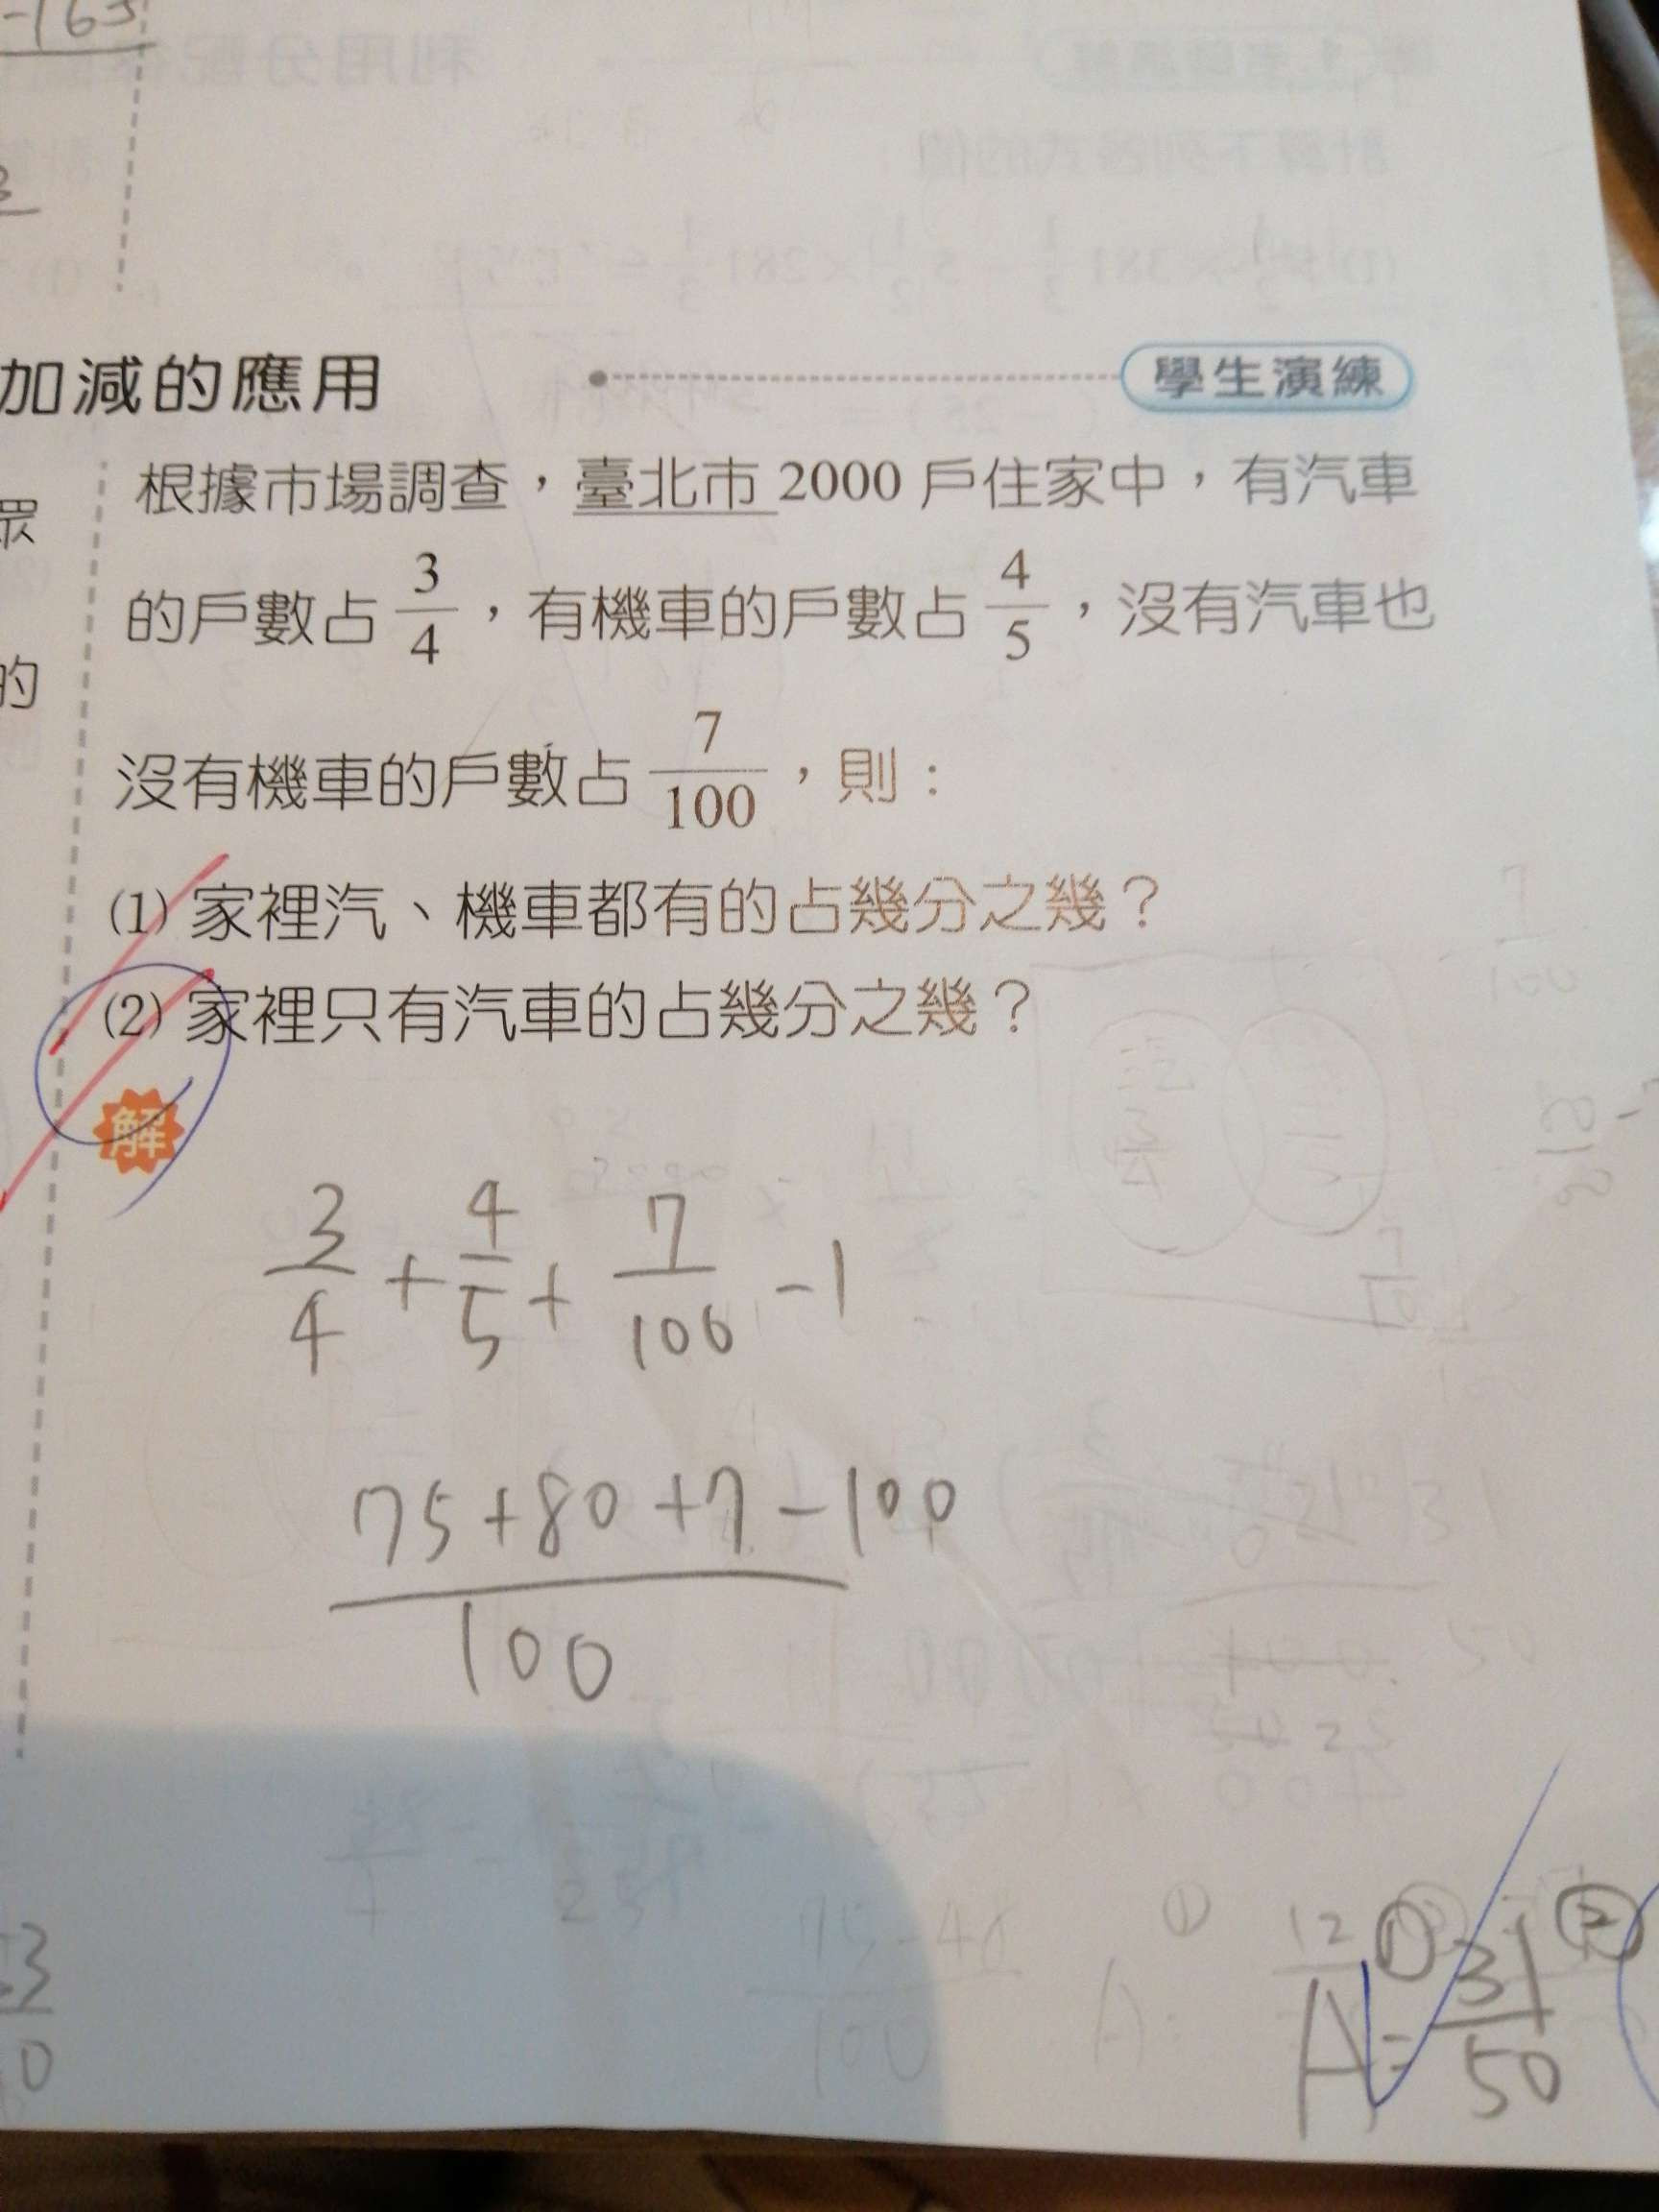 -163
加減的應用 學生演練
根據市場調查,臺北市 2000 戶住家中,有汽車
的戶數占 3/4,有機車的戶數占 4/5,沒有汽車也
沒有機車的戶數占 7/100,則:
(1) 家裡汽、機車都有的占幾分之幾?
(2) 家裡只有汽車的占幾分之幾?
眾
的
解
3/4 + 4/5 + 7/100 - 1
75+80+7-100
100
A = ① 31/50 ②